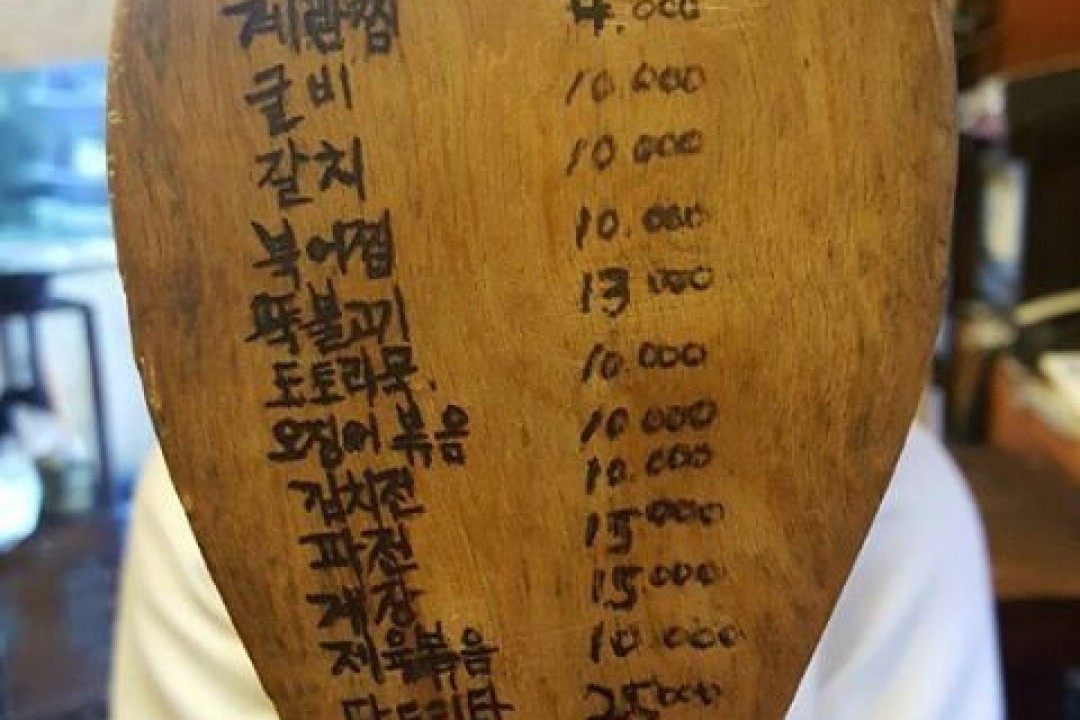 계란찜 4.000
굴비 10.000
갈치 10.000
북어찜 10.000
뚝불고기 13.000
도토리묵. 10.000
오징어볶음 10.000
김치전 10.000
파전 15.000
게장 15.000
제육볶음 10.000
닭도리탕 25.000